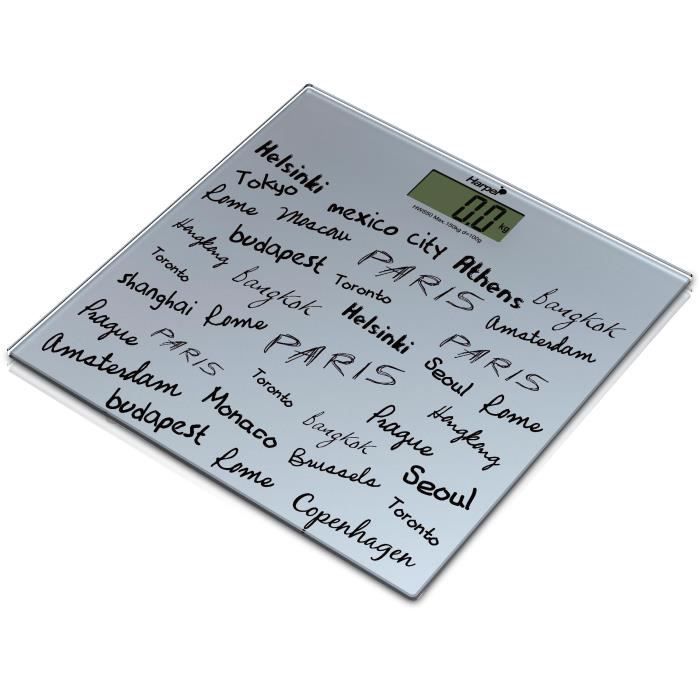 Harper
0.0 kg
HWS50 Max.150kg d=100g
Helsinki
Tokyo mexico city Athens Bangkok
Rome Moscow PARIS Amsterdam
Hongkong budapest Toronto PARIS
Toronto Bangkok Helsinki Seoul Rome
shanghai Rome PARIS Hongkong
Prague PARIS Toronto Prague Seoul
Amsterdam Monaco Bangkok Toronto
budapest Brussels
Rome Copenhagen